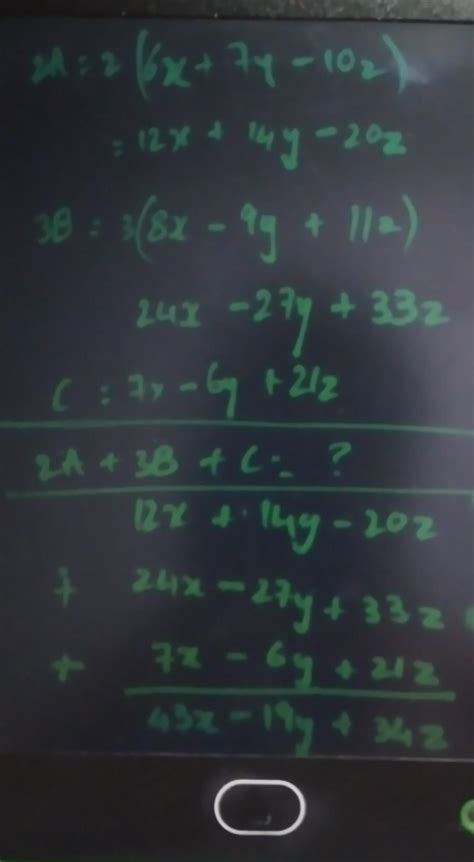 2A = 2 (6x + 7y - 10z)
= 12x + 14y - 20z
3B = 3(8x - 9y + 11z)
24x - 27y + 33z
C = 7x - 6y + 21z
2A + 3B + C = ?
12x + 14y - 20z
+ 24x - 27y + 33z
+ 7x - 6y + 21z
43x - 19y + 34z